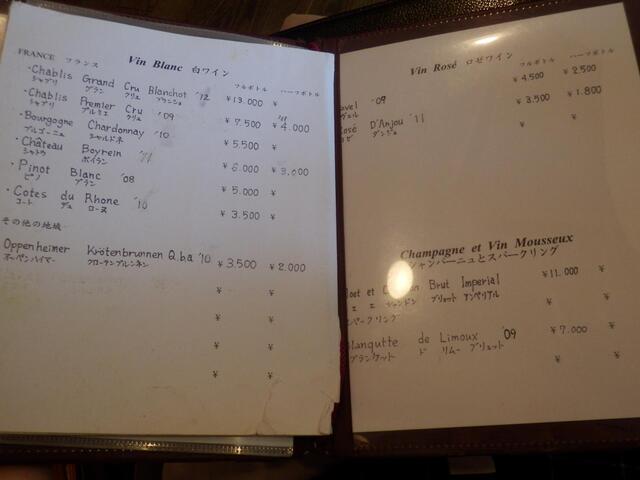 Vin Blanc 白ワイン
FRANCE フランス
フルボトル ハーフボトル
・Chablis Grand Cru Blanchot '12 ¥13.000 ¥
シャブリ グラン クリュ ブランショ
・Chablis Premier Cru '09 ¥7.500 '11 ¥4.000
シャブリ プルミエ クリュ
・Bourgogne Chardonnay '10 ¥5.500 ¥
ブルゴーニュ シャルドネ
・Château Boyrein '11 ¥6.000 ¥3.000
シャトウ ボイラン
・Pinot Blanc '08 ¥5.000 ¥
ピノ ブラン
・Cotes du Rhone '10 ¥3.500 ¥
コート デュ ローヌ
その他の地域
Oppenheimer Krötenbrunnen Q.b.a '10 ¥3.500 ¥2.000
オーペンハイマー クローテンブルンネン
¥ ¥
¥ ¥
¥ ¥
¥ ¥
Vin Rosé ロゼワイン
フルボトル ハーフボトル
avel '09 ¥4.500 ¥2.500
ヴェル
osé D'Anjou '11 ¥3.500 ¥1.800
ゼ ダンジュ
¥ ¥
Champagne et Vin Mousseux
シャンパーニュとスパークリング
oet et Brut Imperial ¥11.000 ¥
エ エ シャンドン ブリュット アンペリアル
¥ ¥
スパークリング
lanqutte de Limoux '09 ¥7.000 ¥
ブランケット ド リムー ブリュット
¥ ¥